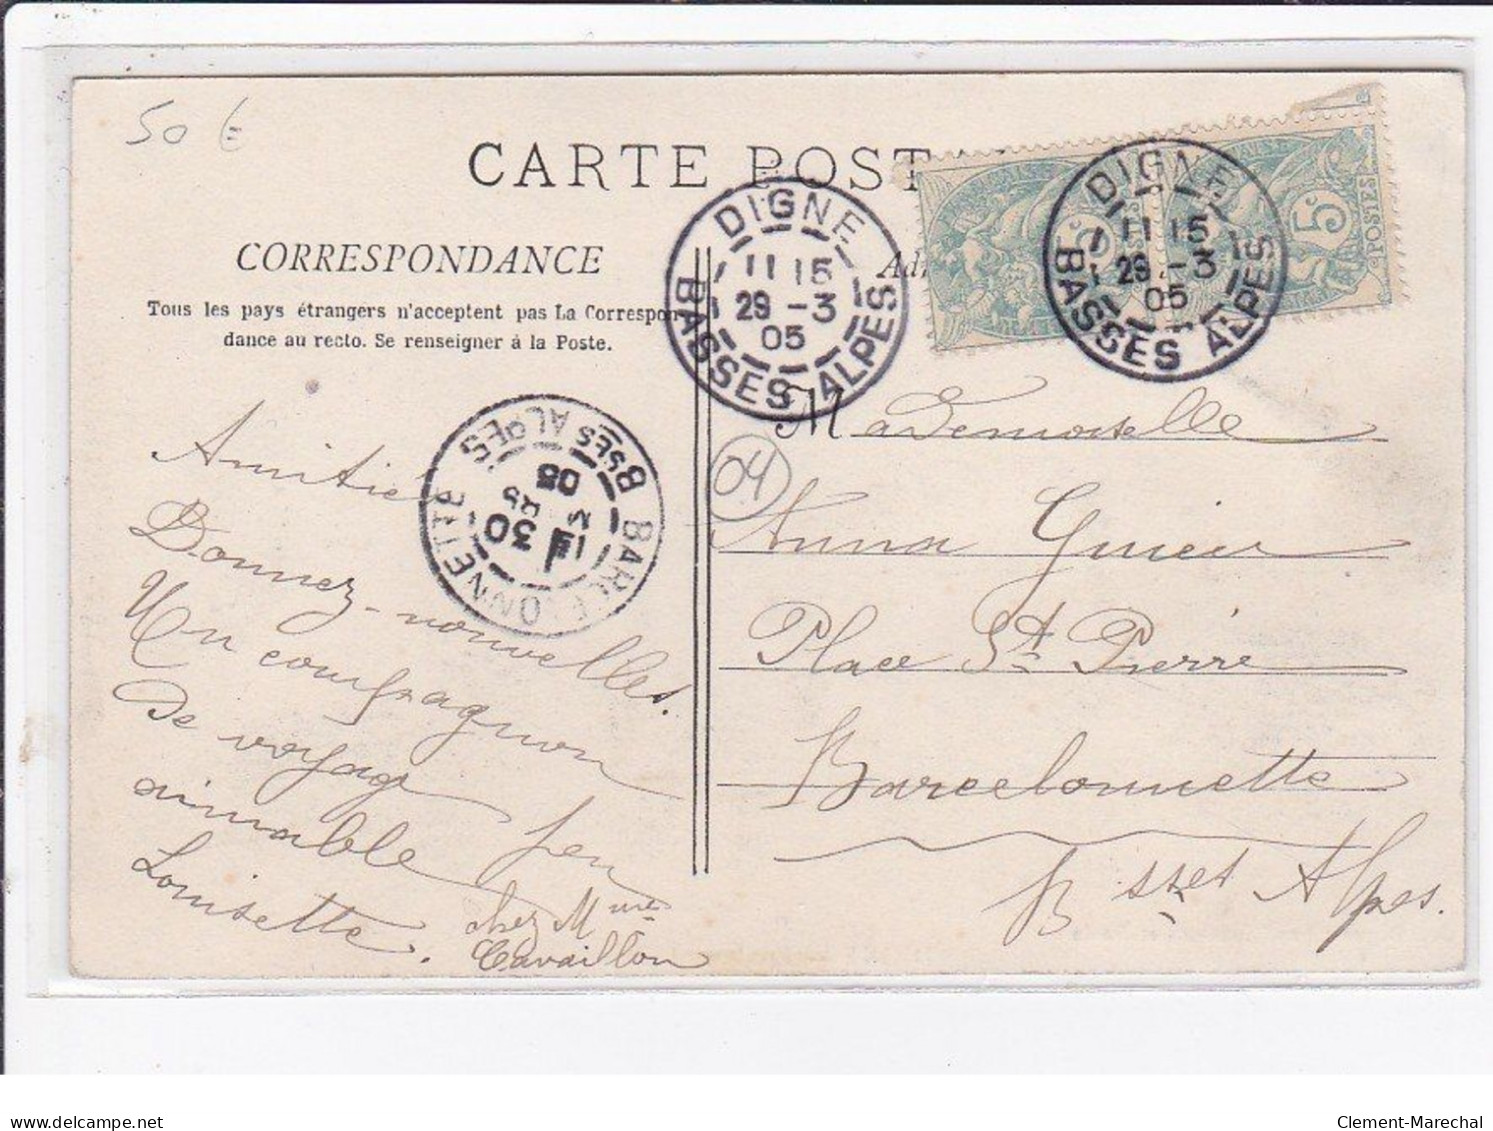 50 €
CARTE POST
CORRESPONDANCE
Tous les pays étrangers n'acceptent pas La Correspon-
dance au recto. Se renseigner à la Poste.
Ad
DIGNE
11 15
29 - 3
05
BASSES ALPES
DIGNE
11 15
29 - 3
05
BASSES ALPES
5c
POSTES
BARCELONNETTE
30
05
BSES ALPES
04
Amitiés
Donnez-nouvelles.
Un compagnon
de voyage peu
aimable
Louisette.
chez Mme
Cavaillon
Mademoiselle
Anna Guieu
Place St Pierre
Barcelonnette
Bsses Alpes.
delcampe.net
Clement-Marechal